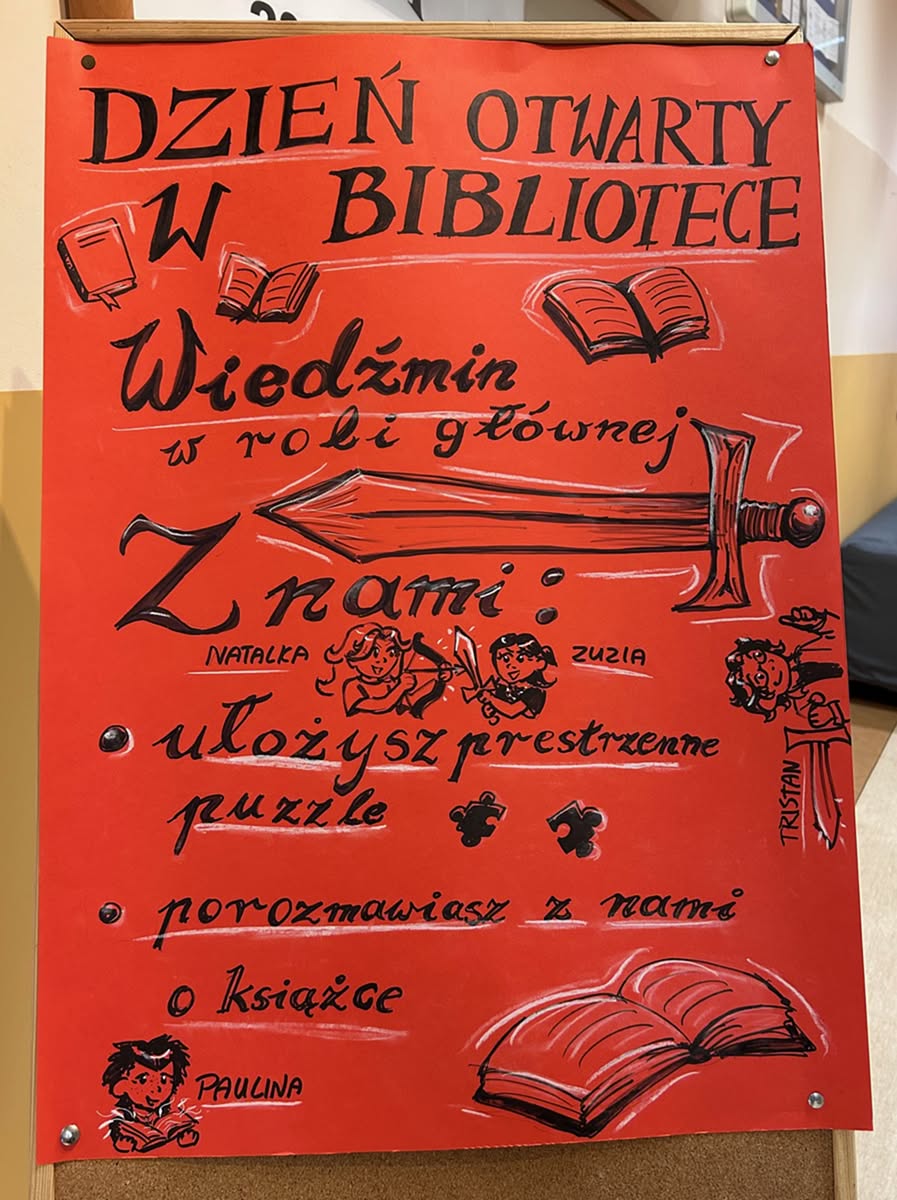 DZIEŃ OTWARTY
W BIBLIOTECE
Wiedźmin
w roli głównej
Z nami:
NATALKA ZUZIA
• ułożysz przestrzenne
puzzle
TRISTAN
• porozmawiasz z nami
o książce
PAULINA